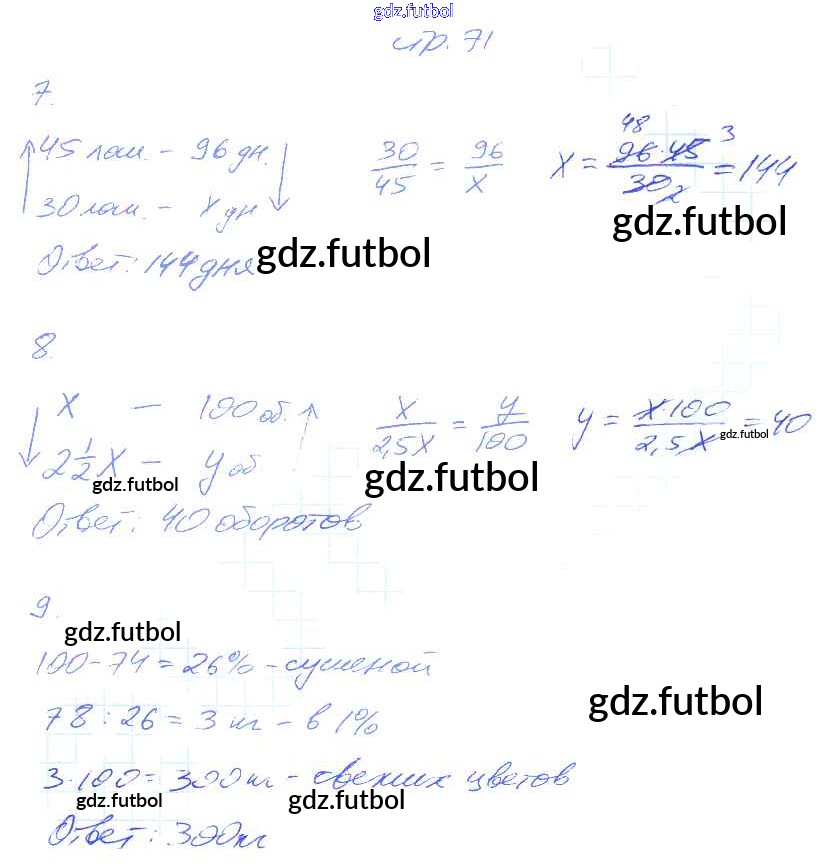 gdz.futbol
стр. 71
7.
45 лош. - 96 дн. 30/45 = 96/x x = 96·45/30 = 144
48 3 2
30 лош. - x дн
gdz.futbol
Ответ: 144 дня gdz.futbol
8.
x - 100 об. x/2,5x = y/100 y = x·100/2,5x = 40
gdz.futbol
2 1/2 x - y об
gdz.futbol gdz.futbol
Ответ: 40 оборотов
9.
gdz.futbol
100-74=26% - сушеной
gdz.futbol
78:26=3 кг - в 1%
3·100=300 кг - свежих цветов
gdz.futbol gdz.futbol
Ответ: 300 кг